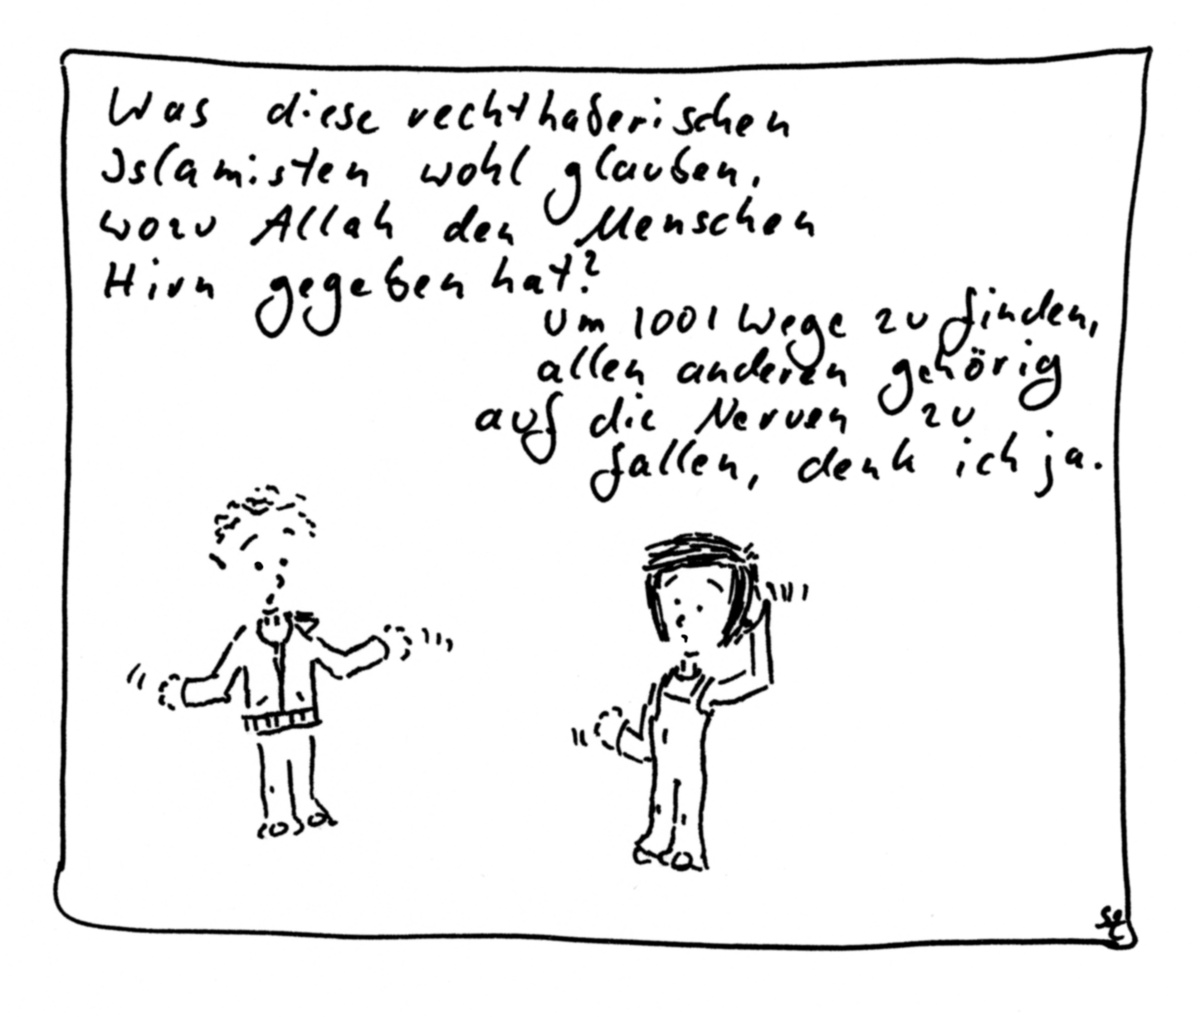 Was diese rechthaberischen
Islamisten wohl glauben,
wozu Allah den Menschen
Hirn gegeben hat?
Um 1001 Wege zu finden,
allen anderen gehörig
auf die Nerven zu
fallen, denk ich ja.